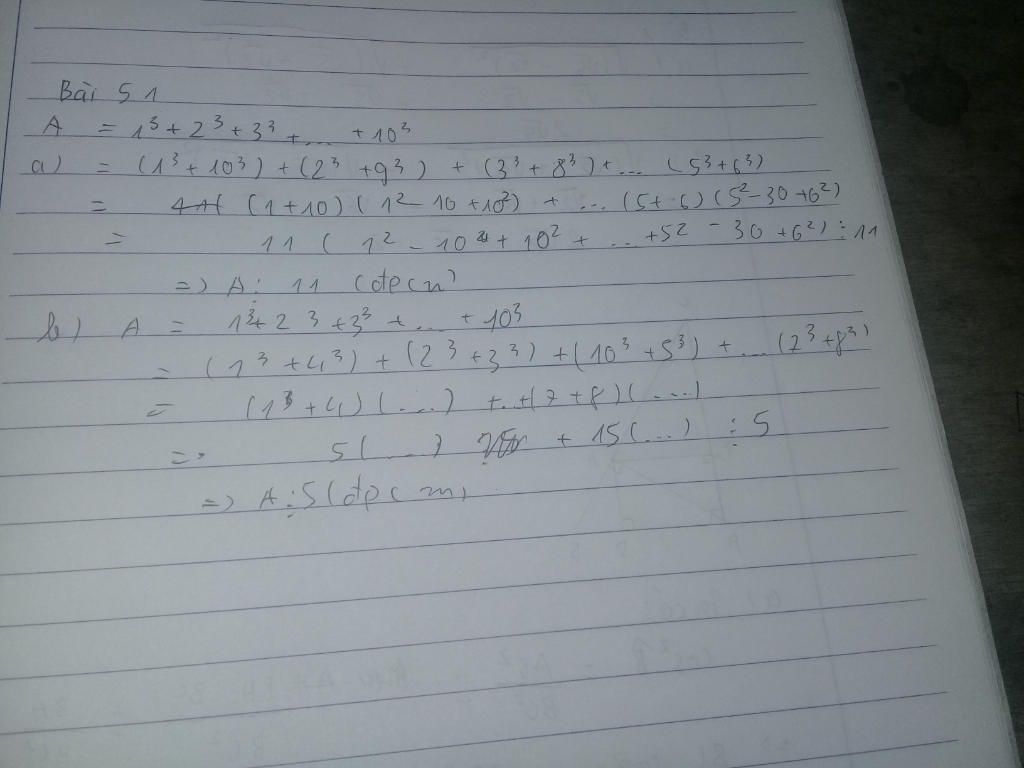 Bài 51
A = 1³ + 2³ + 3³ + ... + 10³
a) = (1³ + 10³) + (2³ + 9³) + (3³ + 8³) + ... (5³ + 6³)
= (1+10) (1² - 10 + 10²) + ... (5+6) (5² - 30 + 6²)
= 11 (1² - 10 + 10² + ... + 5² - 30 + 6²) ⋮ 11
=> A ⋮ 11 (đpcm)
b) A = 1³ + 2³ + 3³ + ... + 10³
= (1³ + 4³) + (2³ + 3³) + (10³ + 5³) + ... (7³ + 8³)
= (1³ + 4) (...) + ... + (7 + 8) (...)
=> 5 (...) + 15 (...) ⋮ 5
=> A ⋮ 5 (đpcm)